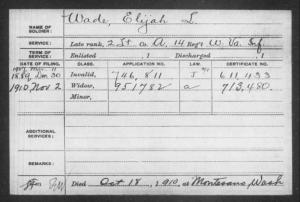 NAME OF SOLDIER: Wade, Elijah L.
SERVICE: Late rank, 2 Lt. Co. A, 14 Reg't W. Va. Inf.
TERM OF SERVICE: Enlisted , 1 Discharged , 1
DATE OF FILING. CLASS. APPLICATION NO. LAW. CERTIFICATE NO.
1889, Dec 30 Invalid, 746,811 611,433
1910, Nov 2 Widow, 951782 a 713,480.
Minor,
ADDITIONAL SERVICES:
REMARKS:
Died Oct 18, 1910, at Montesano, Wash